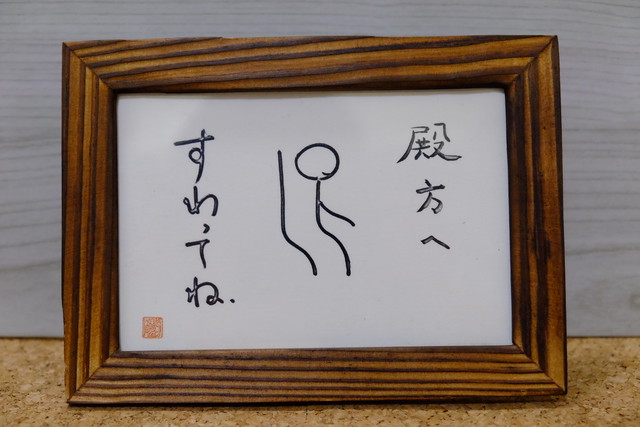 殿方へ
すわってね、